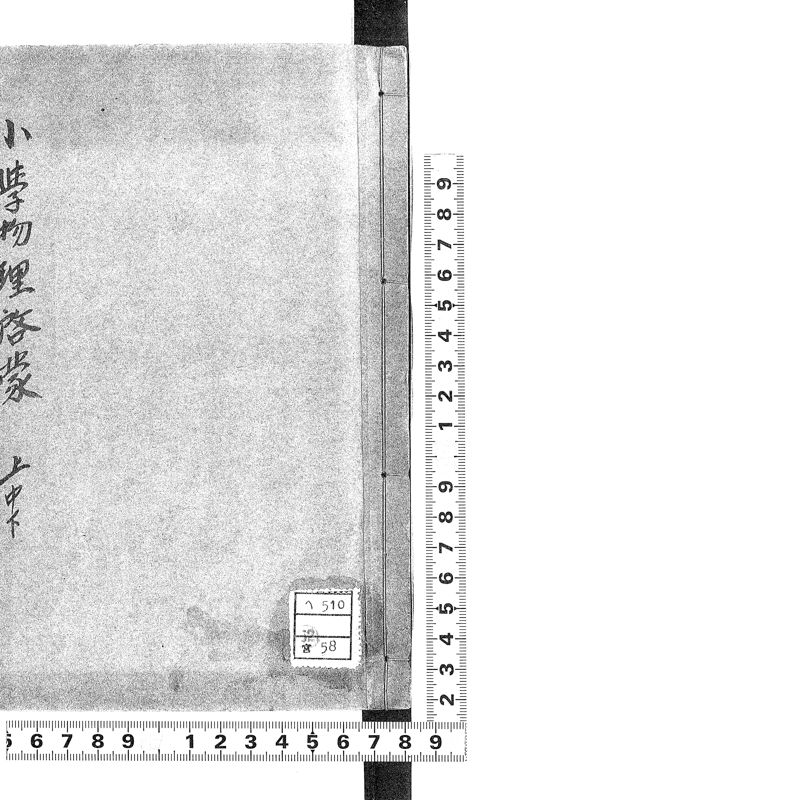 小學物理啓蒙 上中下
へ 510
58
9 8 7 6 5 4 3 2 1 9 8 7 6 5 4 3 2
6 7 8 9 1 2 3 4 5 6 7 8 9